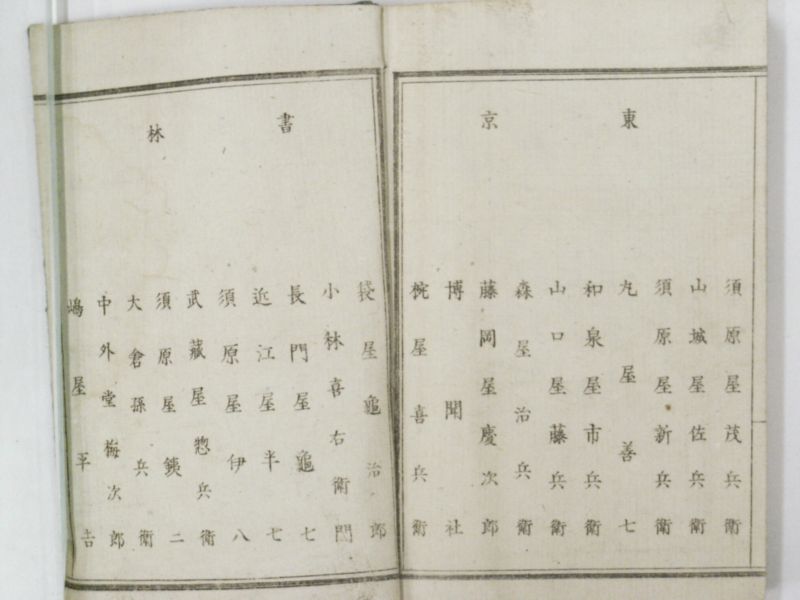 東京
須原屋茂兵衛
山城屋佐兵衛
須原屋新兵衛
丸屋善七
和泉屋市兵衛
山口屋藤兵衛
藤岡屋慶次郎
森屋治兵衛
博聞社
椀屋喜兵衛
書林
袋屋亀治郎
小林喜右衛門
長門屋亀七
近江屋半七
須原屋伊八
武蔵屋惣兵衛
須原屋鉄二
大倉孫兵衛
中外堂梅次郎
嶋屋平吉